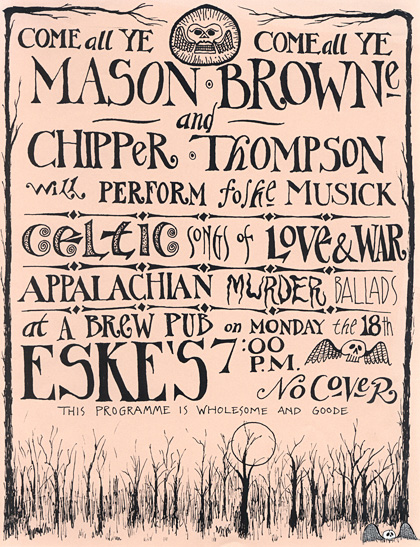 COME all YE
COME all YE
MASON · BROWNe
and
CHIPPeR · ThOMPSON
will PERFORM folke MUSICK
CeLTIC SONGS of LOVE & WAR
APPALACHIAN MURDER BALLADS
at A BREW PUB on MONDAY the 18th
ESKE'S 7:00 P.M.
No CoveR
THIS PROGRAMME IS WHOLESOME AND GOODE